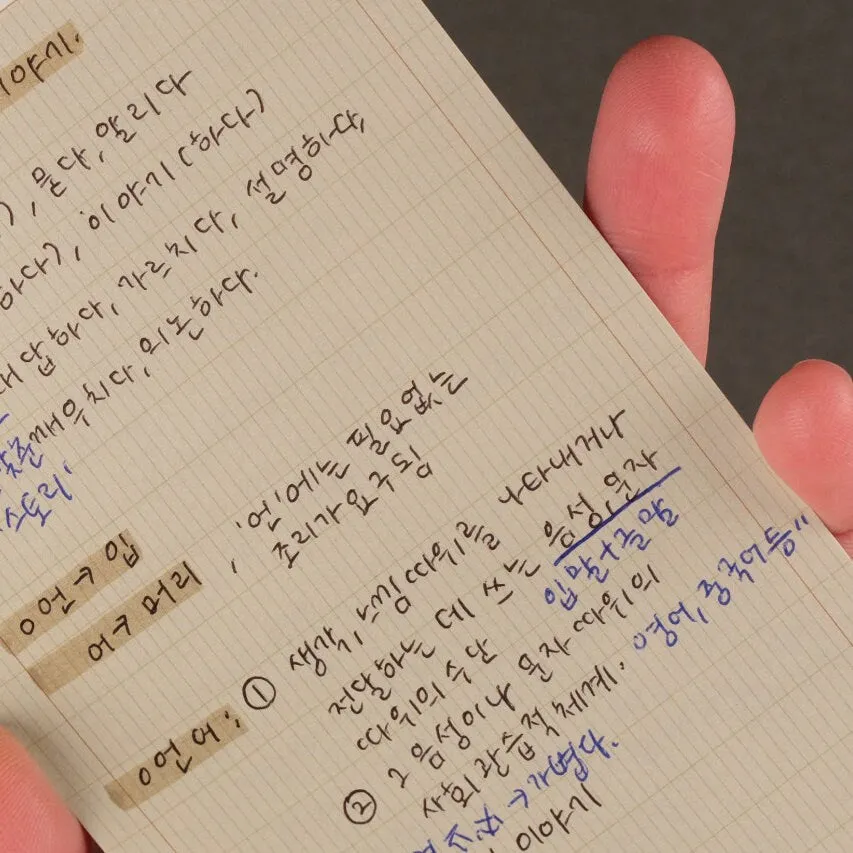 이야기.
), 묻다, 알리다
하다), 이야기(하다)
대답하다, 가르치다, 설명하다,
깨우치다, 의논하다.
스토리.
언→입
어→머리, '언'어에는 필요없는
조리가 요구됨
언어; ① 생각, 느낌 따위를 나타내거나
전달하는 데 쓰는 음성, 문자
입말+글말
따위의 수단
② 그 음성이나 문자 따위의
사회 관습적 체계. 영어, 중국어 등"
→가볍다.
이야기